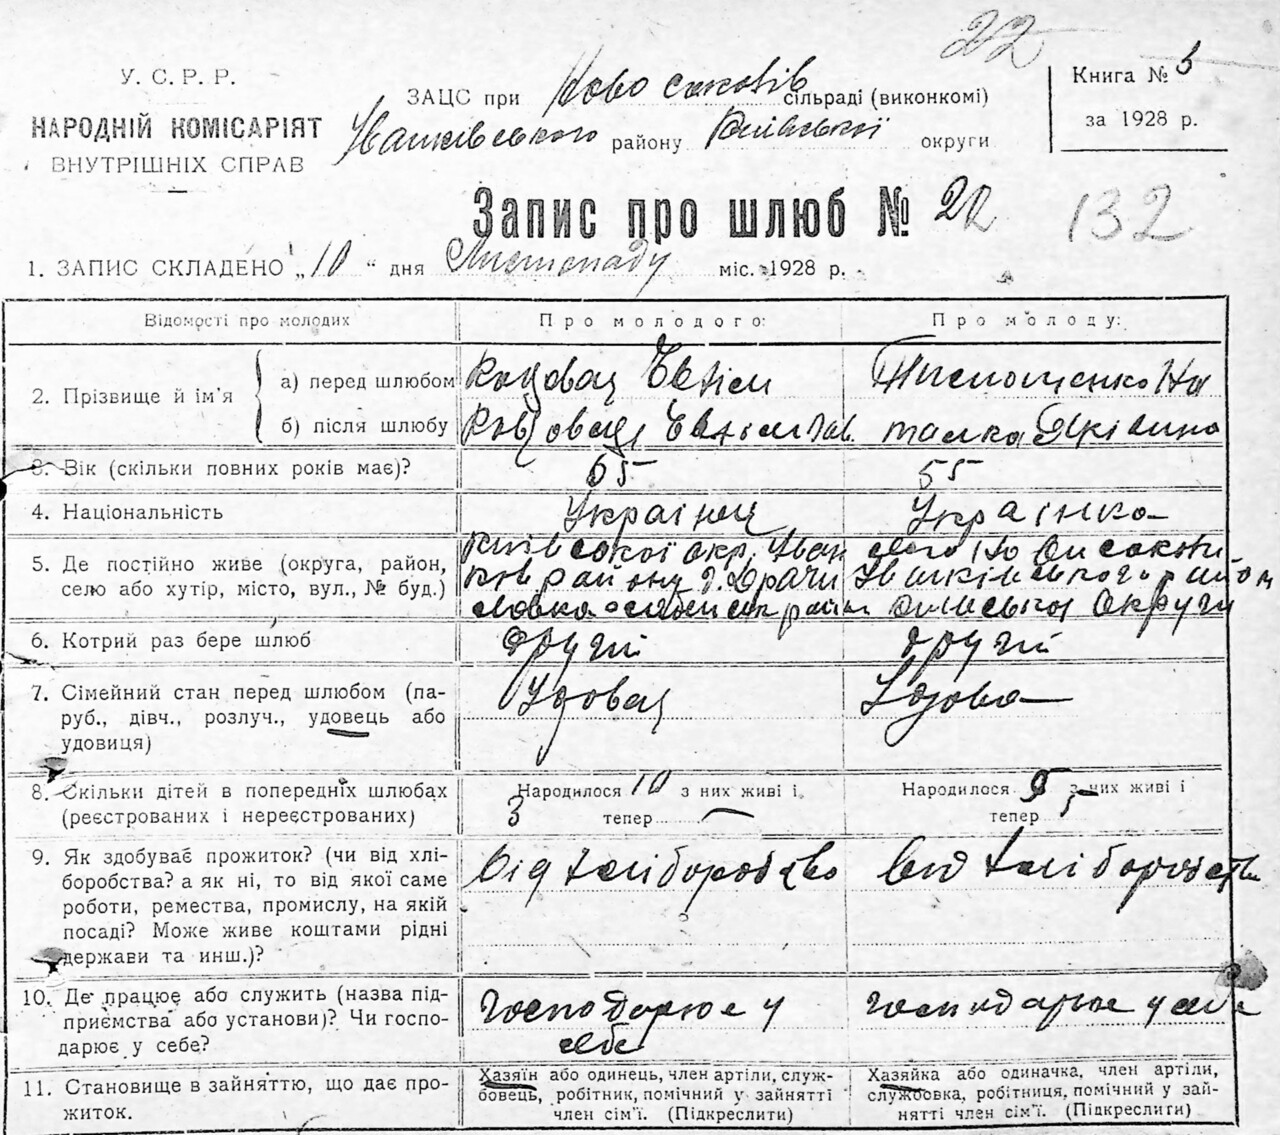 22
У. С. Р. Р.
НАРОДНІЙ КОМІСАРІЯТ
ВНУТРІШНІХ СПРАВ
ЗАЦС при сільраді (виконкомі)
району Київської округи
Книга №
за 1928 р.
Запис про шлюб № 22
132
1. ЗАПИС СКЛАДЕНО „10“ дня Листопаду міс. 1928 р.
Відомості про молодих
Про молодого:
Про молоду:
2. Прізвище й ім'я
а) перед шлюбом
б) після шлюбу
Тимошенко На
талка Яківна
3. Вік (скільки повних років має)?
65
55
4. Національність
Українец
Українка
5. Де постійно живе (округа, район,
селю або хутір, місто, вул., № буд.)
Київської окр.
району
округи
6. Котрий раз бере шлюб
другий
другий
7. Сімейний стан перед шлюбом (па-
руб., дівч., розлуч., удовець або
удовиця)
Удовец
Удова
8. Скільки дітей в попередніх шлюбах
(реєстрованих і нереєстрованих)
Народилося 10 з них живі і
3 тепер
Народилося 9 з них живі і
тепер 5
9. Як здобуває прожиток? (чи від хлі-
боробства? а як ні, то від якої саме
роботи, ремества, промислу, на якій
посаді? Може живе коштами рідні
держави та инш.)?
від
10. Де працює або служить (назва під-
приємства або установи)? Чи госпо-
дарює у себе?
господарює у
себе
господарює у себе
11. Становище в зайняттю, що дає про-
житок.
Хазяїн або одинець, член артілі, служ-
бовець, робітник, помічний у зайнятті
член сім'ї. (Підкреслити)
Хазяйка або одиначка, член артілі,
службовка, робітниця, помічний у зай-
нятті член сім'ї. (Підкреслити)